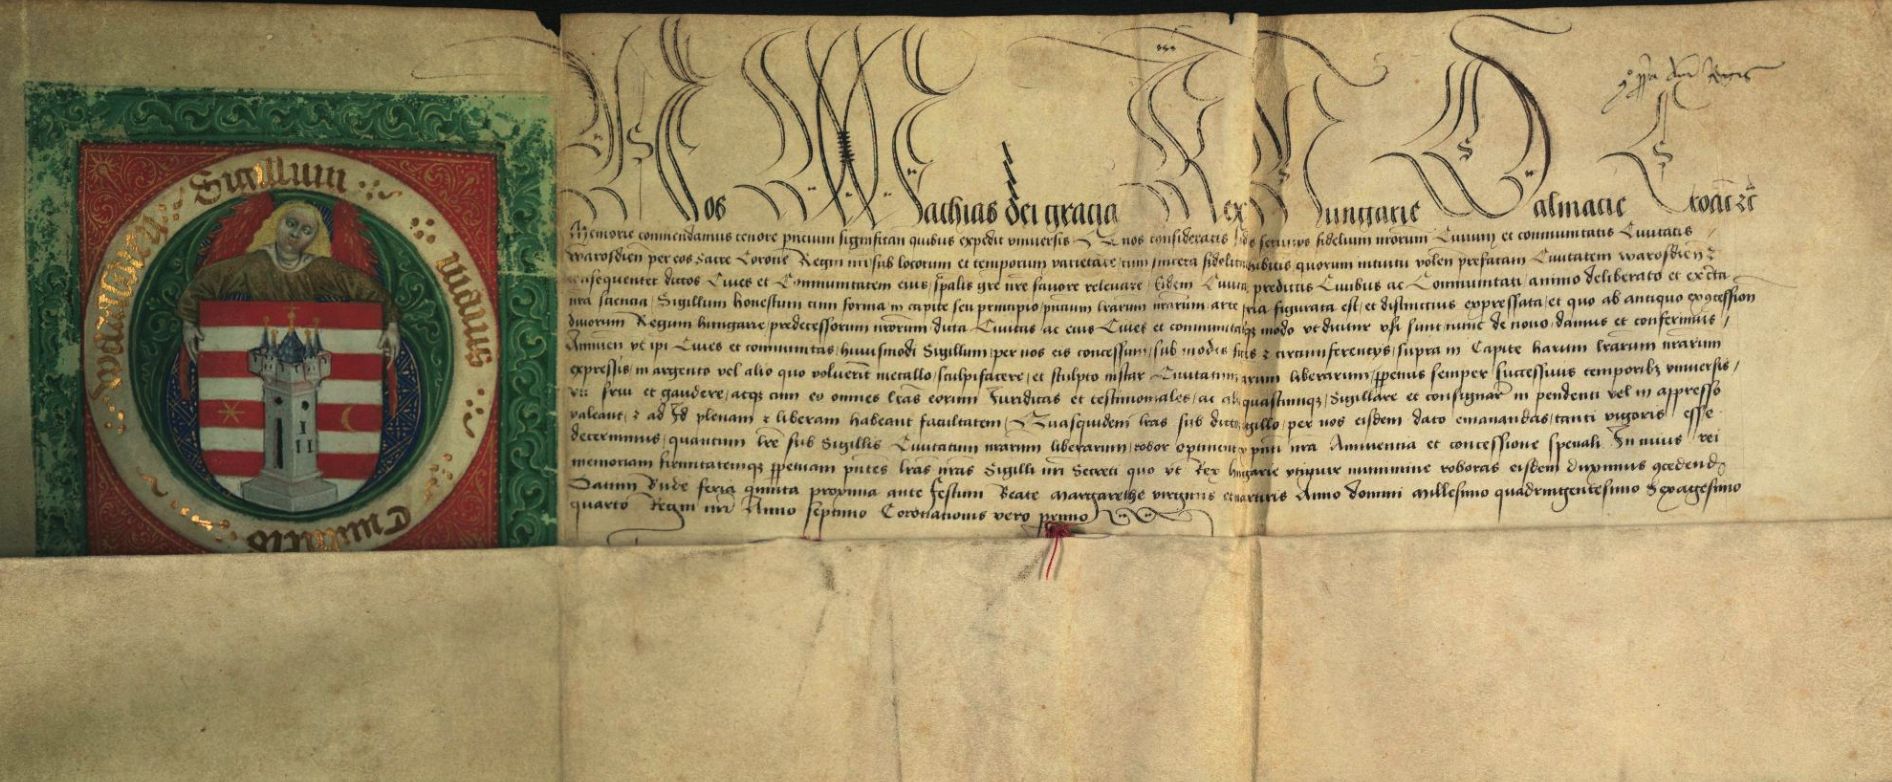 Sigillum
maius
Ciuitatis
p̄pa dn̄i Regis
Nos Mathias dei gracia Rex Hungarie Dalmacie Croacie ꝛc̄
Memorie commendamus tenore pn̄cium significan̄ quibus expedit vniuersis Q nos consideratis fidelium nr̄orum Ciuium et communitatis Ciuitatis
warosdien̄ per eos Sacre Corone Regni nr̄i sub locorum et temporum varietate cum sincera quorum intuitu volen̄ prefatam Ciuitatem warosdien̄ ꝛ
consequenter dictos Ciues et Communitatem eius spālis grē nr̄e fauore releuare Eidem predictis Ciuibus ac Communitati animo deliberato et ex certa
nr̄a sciencia Sigillum honestum cum forma in capite seu principio pn̄cium lr̄arum nr̄arum arte figurata est et distinctius expressata et quo ab antiquo ex concession
diuorum Regum hungarie predecessorum nr̄orum dicta Ciuitas ac eius Ciues et communitas modo vt dicitur vsi sunt nunc de nouo damus et confermamus
Annuen̄ vt ipi Ciues et communitas huiusmodi Sigillum per nos eis concessum sub modis ꝛ circumferencys supra in Capite harum lr̄arum nr̄arum
expressis in argento vel alio quo voluerint metallo sculpifacere et sculpto instar Ciuitatum nr̄arum liberarum ꝑpetuis semper successiuis temporibꝫ vniuersis
vti frui et gaudere atqꝫ cum eo omnes lr̄as eorum Iuridicas et testimoniales ac quascumqꝫ Sigillare et consignar̄ in pendenti vel in appresso
valeant ꝛ ad Id plenam ꝛ liberam habeant facultatem Quasquidem lr̄as sub dicto sigillo per nos eisdem dato emanandas tanti vigoris esse
decernimus quantum lr̄e sub Sigillis Ciuitatum nr̄arum liberarum robor optinent pn̄ti nr̄a Annuencia et concessione speciali In cuius rei
memoriam firmitatemqꝫ ꝑpetuam pn̄tes lr̄as nr̄as Sigilli nr̄i Secreti quo vt Rex hungarie vtimur munimine roboratas eisdem duximus concedend
Datum Bude feria quinta proxima ante festum Beate Margarethe virginis et martiris Anno domini Millesimo quadringentesimo Sexagesimo
quarto Regni nr̄i Anno septimo Coronacionis vero primo